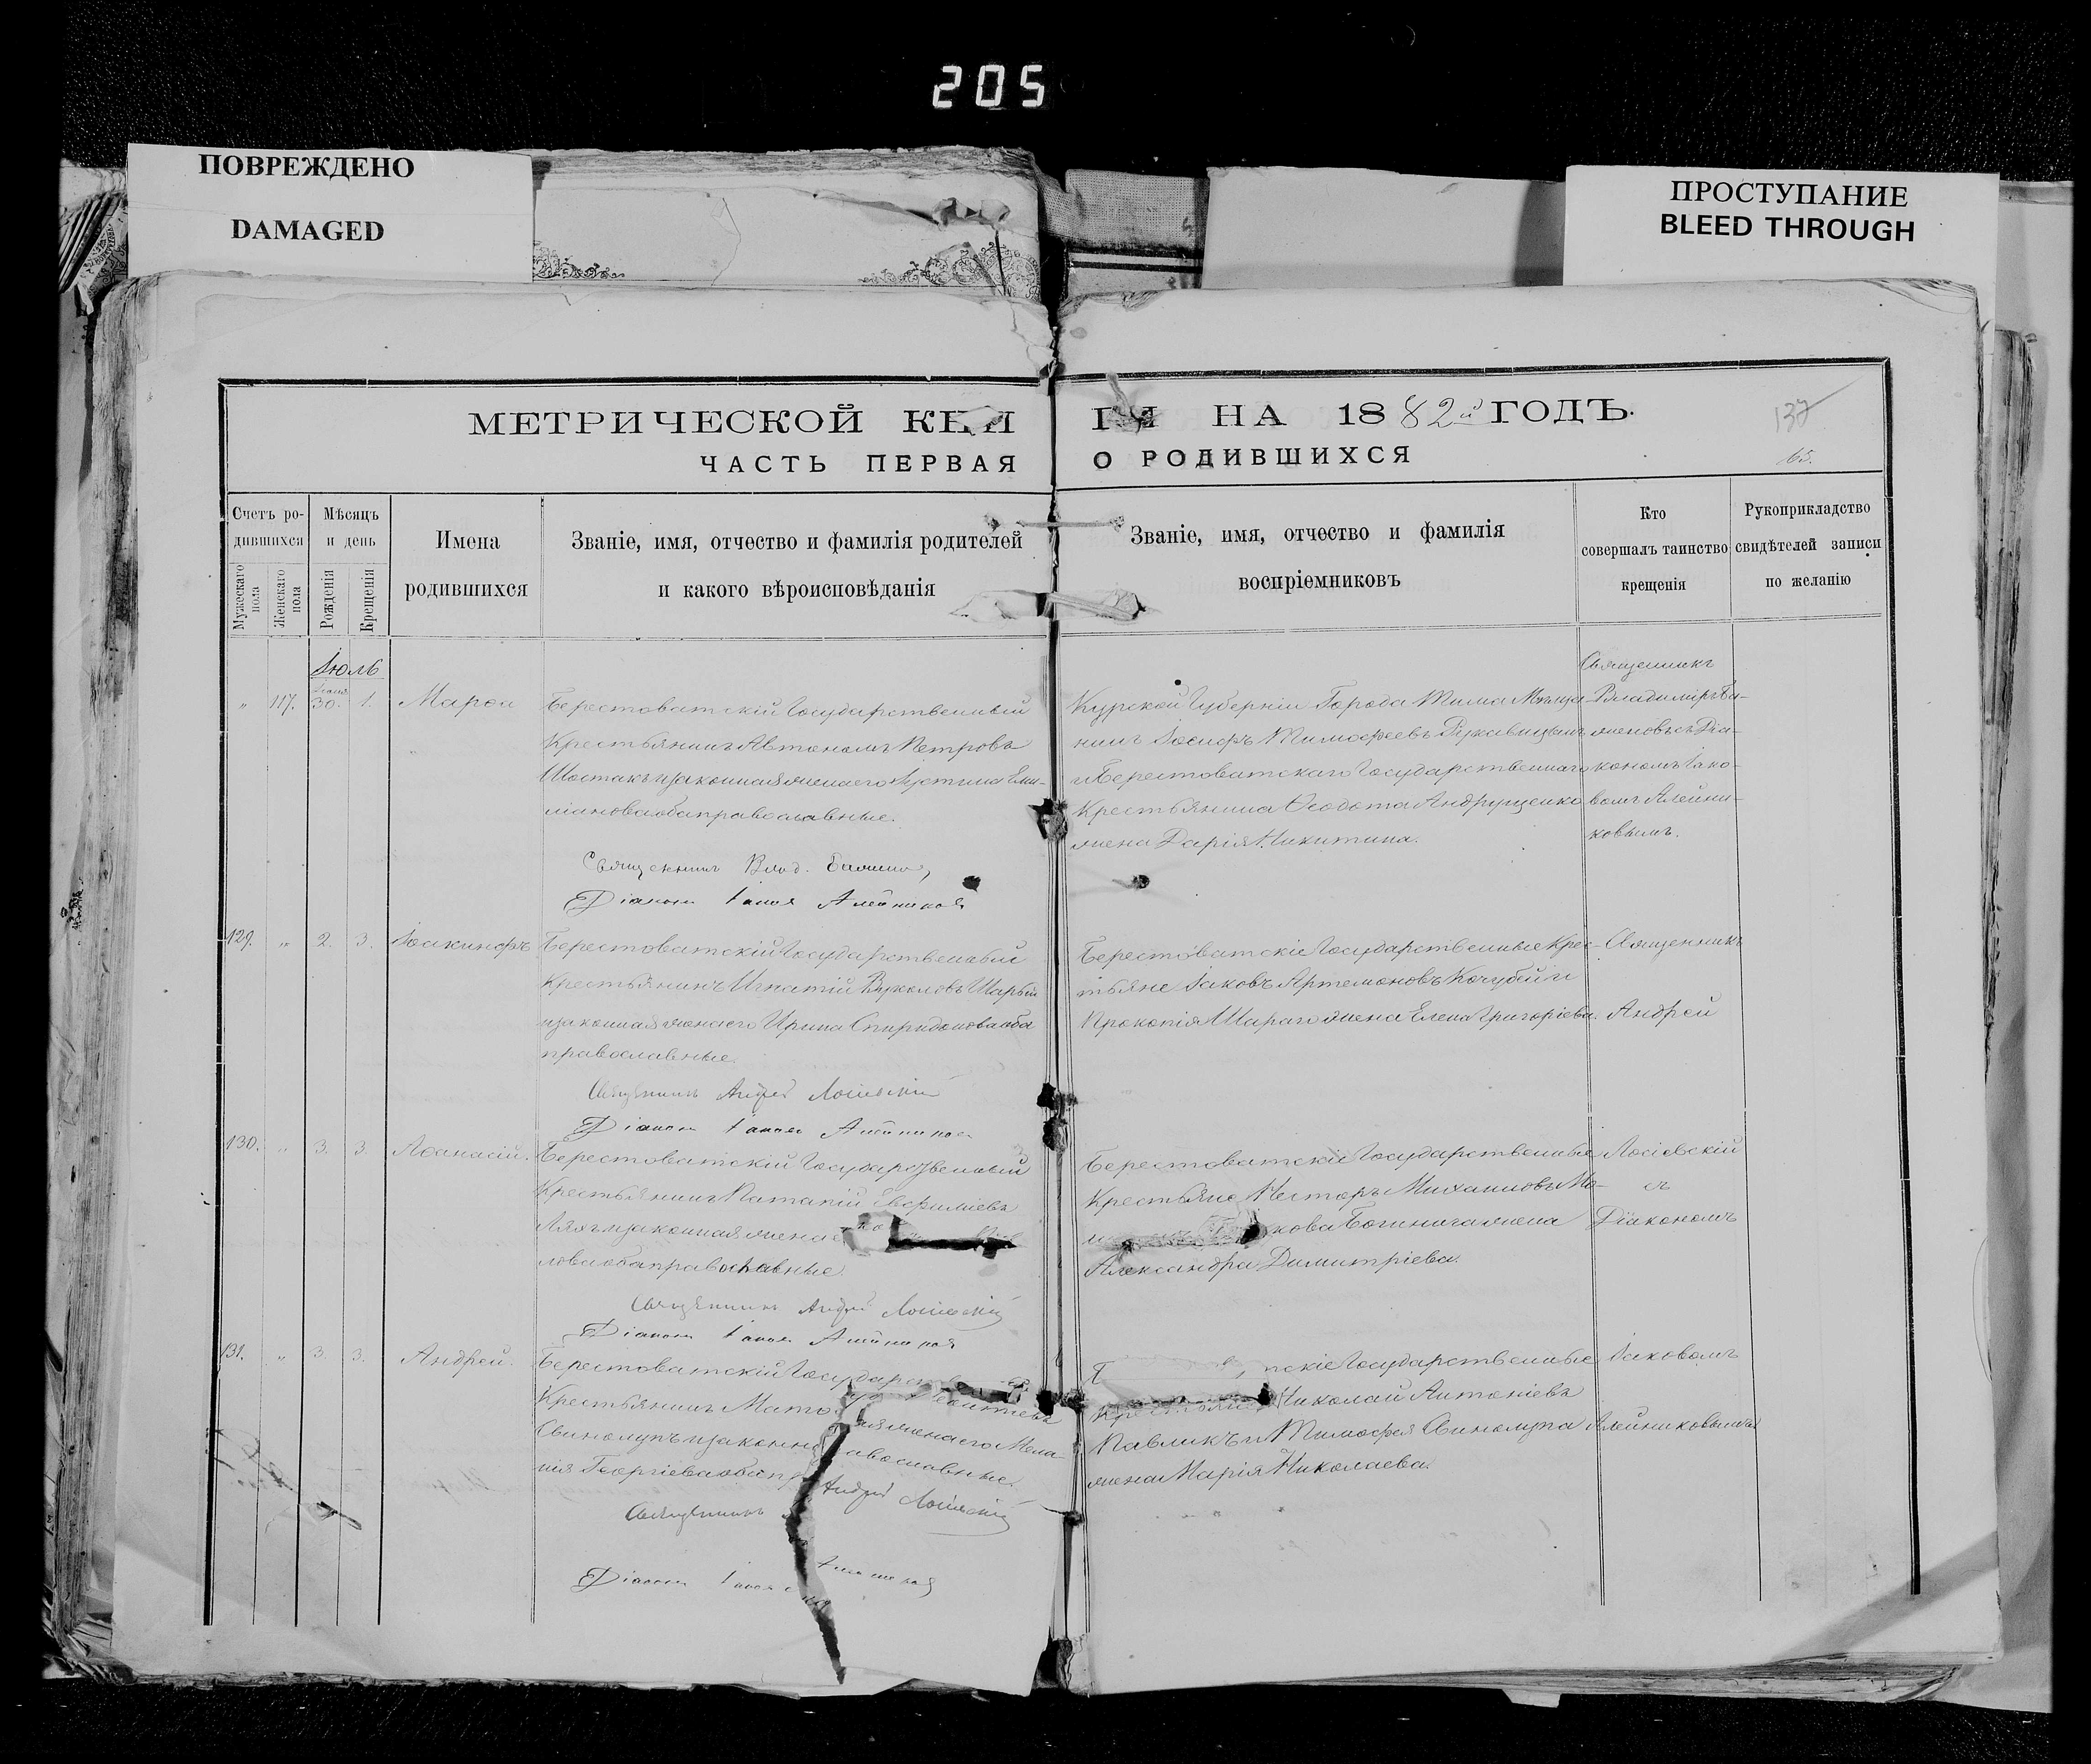 205
ПОВРЕЖДЕНО
DAMAGED
ПРОСТУПАНИЕ
BLEED THROUGH
МЕТРИЧЕСКОЙ КНИГИ НА 1882й ГОДЪ.
137
ЧАСТЬ ПЕРВАЯ О РОДИВШИХСЯ
65.
Счетъ родившихся
Мужескаго пола
Женскаго пола
Мѣсяцъ и день
Рожденія
Крещенія
Имена родившихся
Званіе, имя, отчество и фамилія родителей
и какого вѣроисповѣданія
Званіе, имя, отчество и фамилія
воспріемниковъ
Кто
совершалъ таинство
крещенія
Рукоприкладство
свидѣтелей записи
по желанію
Іюль
" 117. Іюня 30. 1. Марѳа
Берестоватскій Государственный
Крестьянинъ Автономъ Петровъ
Шостакъ и законная жена его Іустина Еми-
ліанова оба православные.
Священникъ Влад.
Діаконъ Іаковъ Алейниковъ
Курской Губерніи Города Тима Мѣща-
нинъ Іосифъ Тимоѳеевъ Рукавицынъ
и Берестоватскаго Государственнаго
Крестьянина Ѳеодота Андрущенко
жена Дарія Никитина.
Священникъ
Владиміръ
съ Діа-
кономъ Іако-
вомъ Алейни-
ковымъ.
129. " 2. 3. Іоакинфъ
Берестоватскій Государственный
Крестьянинъ Игнатій Вуколовъ Шарый
и законная жена его Ирина Спиридонова оба
православные.
Священникъ Андрей Лосіевскій
Діаконъ Іаковъ Алейниковъ
Берестоватскіе Государственные Крес-
тьяне Іаковъ Артемоновъ Кочубей и
Прокопія Шараго жена Елена Григоріева.
Священникъ
Андрей
130. " 3. 3. Аѳанасій.
Берестоватскій Государственный
Крестьянинъ Патапій
Ляхъ и законная жена
лова оба православные.
Священникъ Андрей Лосіевскій
Діаконъ Іаковъ Алейниковъ
Берестоватскіе Государственные
Крестьяне Несторъ Михаиловъ
кова Богинича жена
Александра Димитріева.
Лосіевскій
съ
Діакономъ
131. " 3. 3. Андрей.
Берестоватскій
Крестьянинъ
Свинолупъ и законная жена его Мела-
нія Георгіева оба православные.
Священникъ Андрей Лосіевскій
Діаконъ Іаковъ Алейниковъ
тскіе Государственные
Крестьяне Николай Антоніевъ
Павликъ и Тимоѳея Свинолупа
жена Марія Николаева.
Іаковомъ
Алейниковымъ